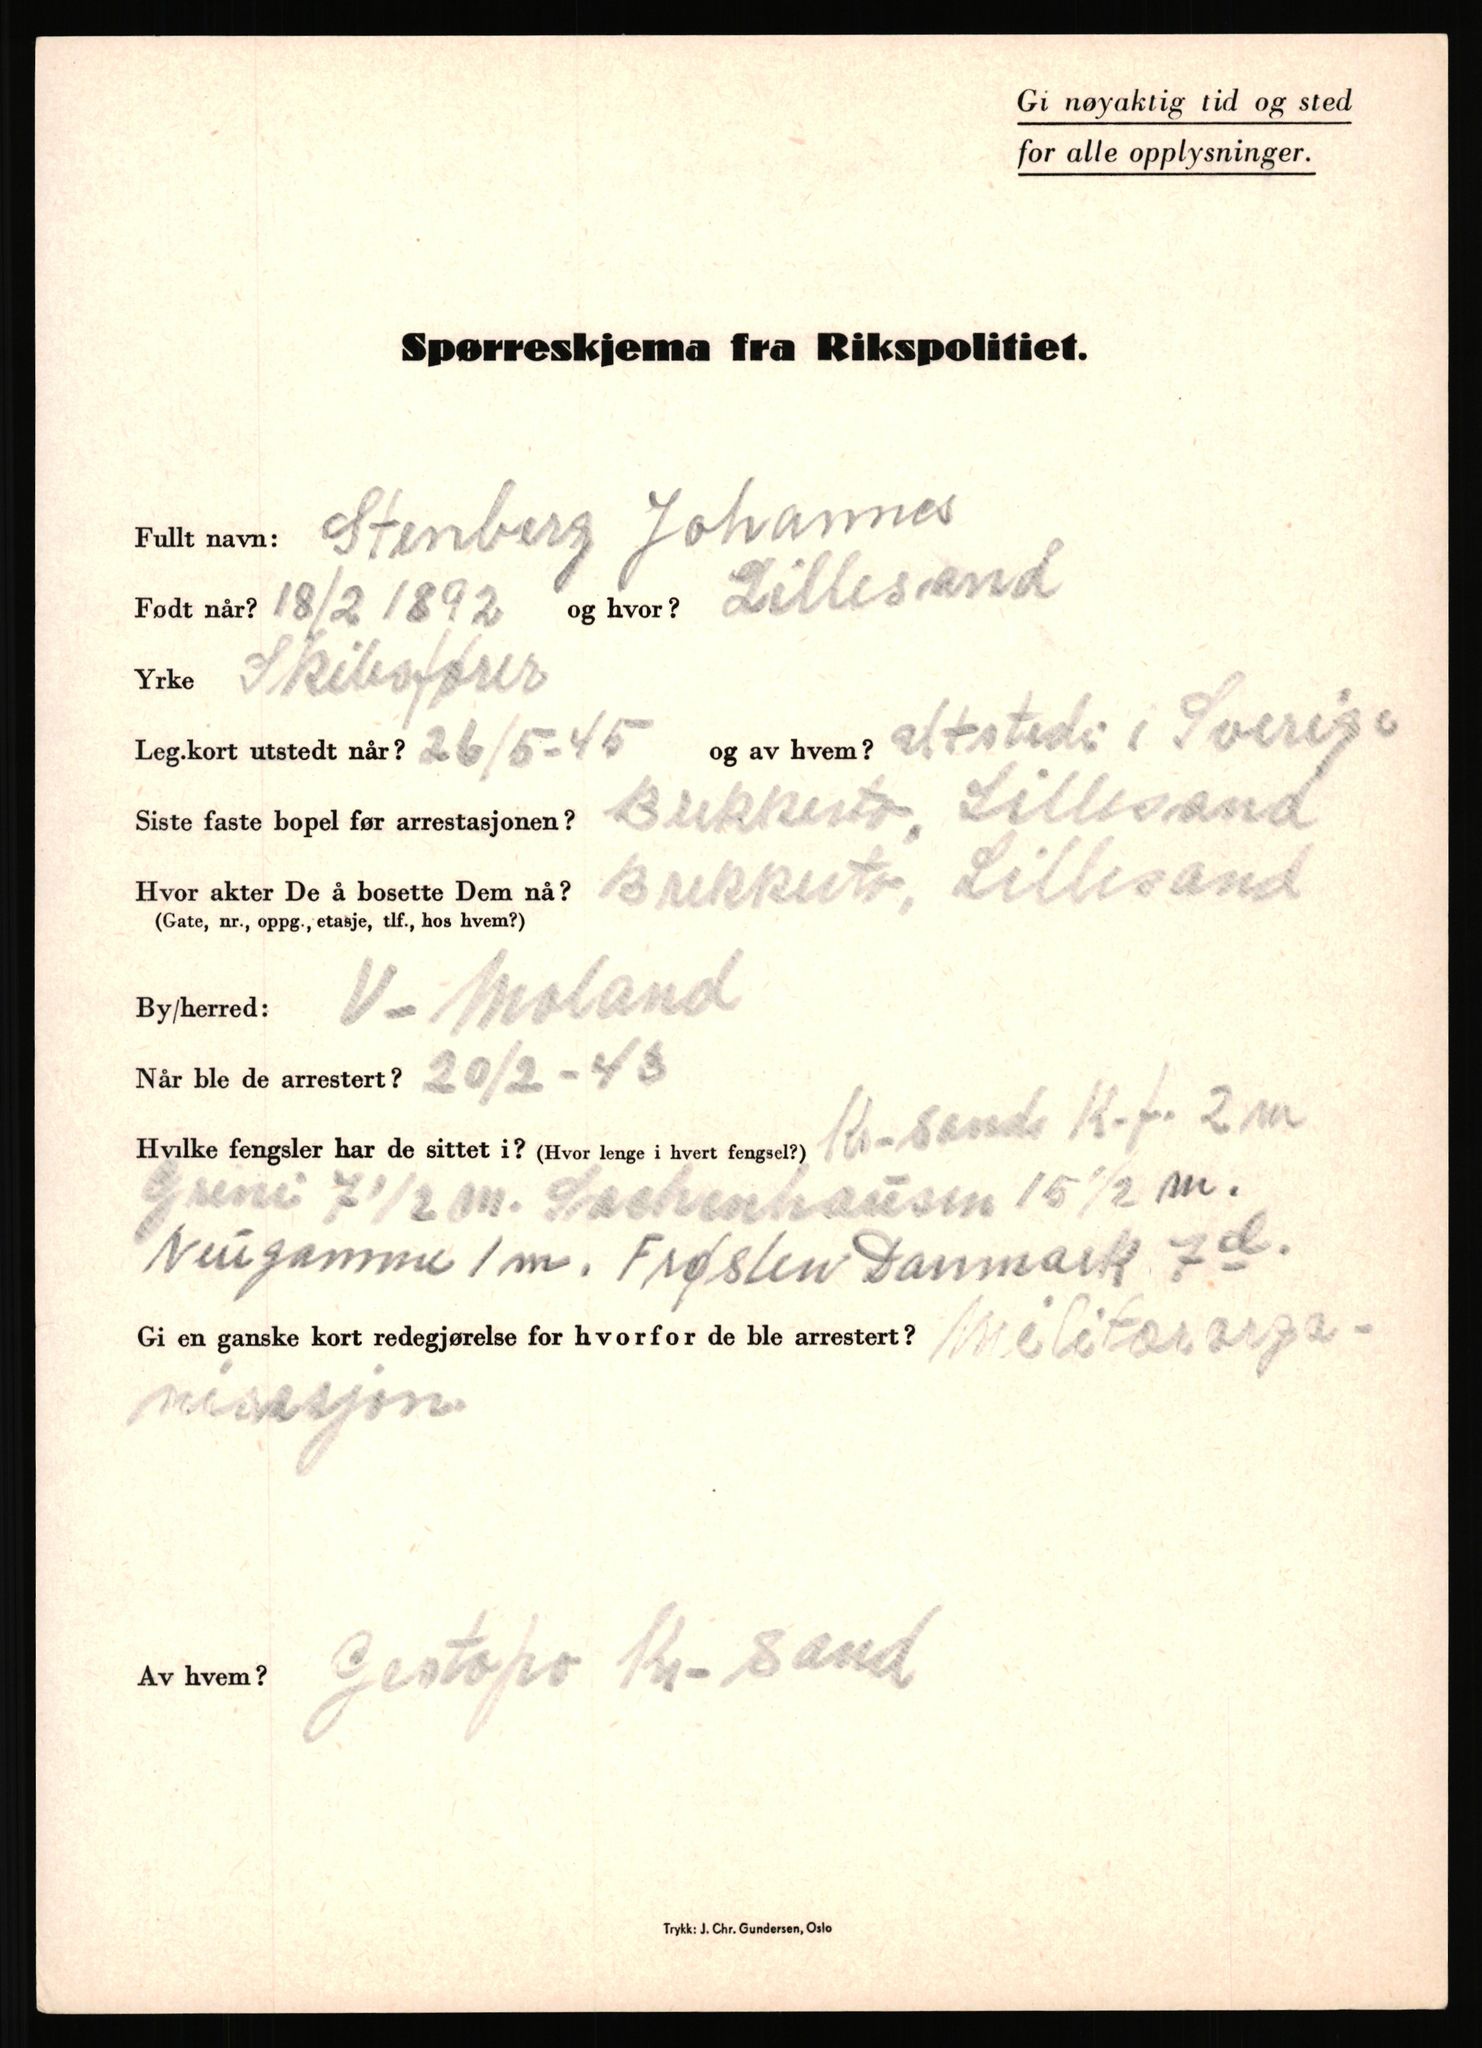 Gi nøyaktig tid og sted
for alle opplysninger.
Spørreskjema fra Rikspolitiet.
Fullt navn: Stenberg Johannes
Født når? 18/2 1892 og hvor? Lillesand
Yrke Skibsfører
Leg.kort utstedt når? 26/5-45 og av hvem? utstedt i Sverige
Siste faste bopel før arrestasjonen? Brekkestø, Lillesand
Hvor akter De å bosette Dem nå? Brekkestø, Lillesand
(Gate, nr., oppg., etasje, tlf., hos hvem?)
By/herred: V- Moland
Når ble de arrestert? 20/2-43
Hvilke fengsler har de sittet i? (Hvor lenge i hvert fengsel?) Kr-sands K.f. 2 m
Greni 7 1/2 m. Sachenhausen 15 1/2 m.
Neugamme 1 m. Frøslev Danmark 7 d.
Gi en ganske kort redegjørelse for hvorfor de ble arrestert? Militærorga-
nisasjon
Av hvem? Gestapo Kr-sand
Trykk: J. Chr. Gundersen, Oslo